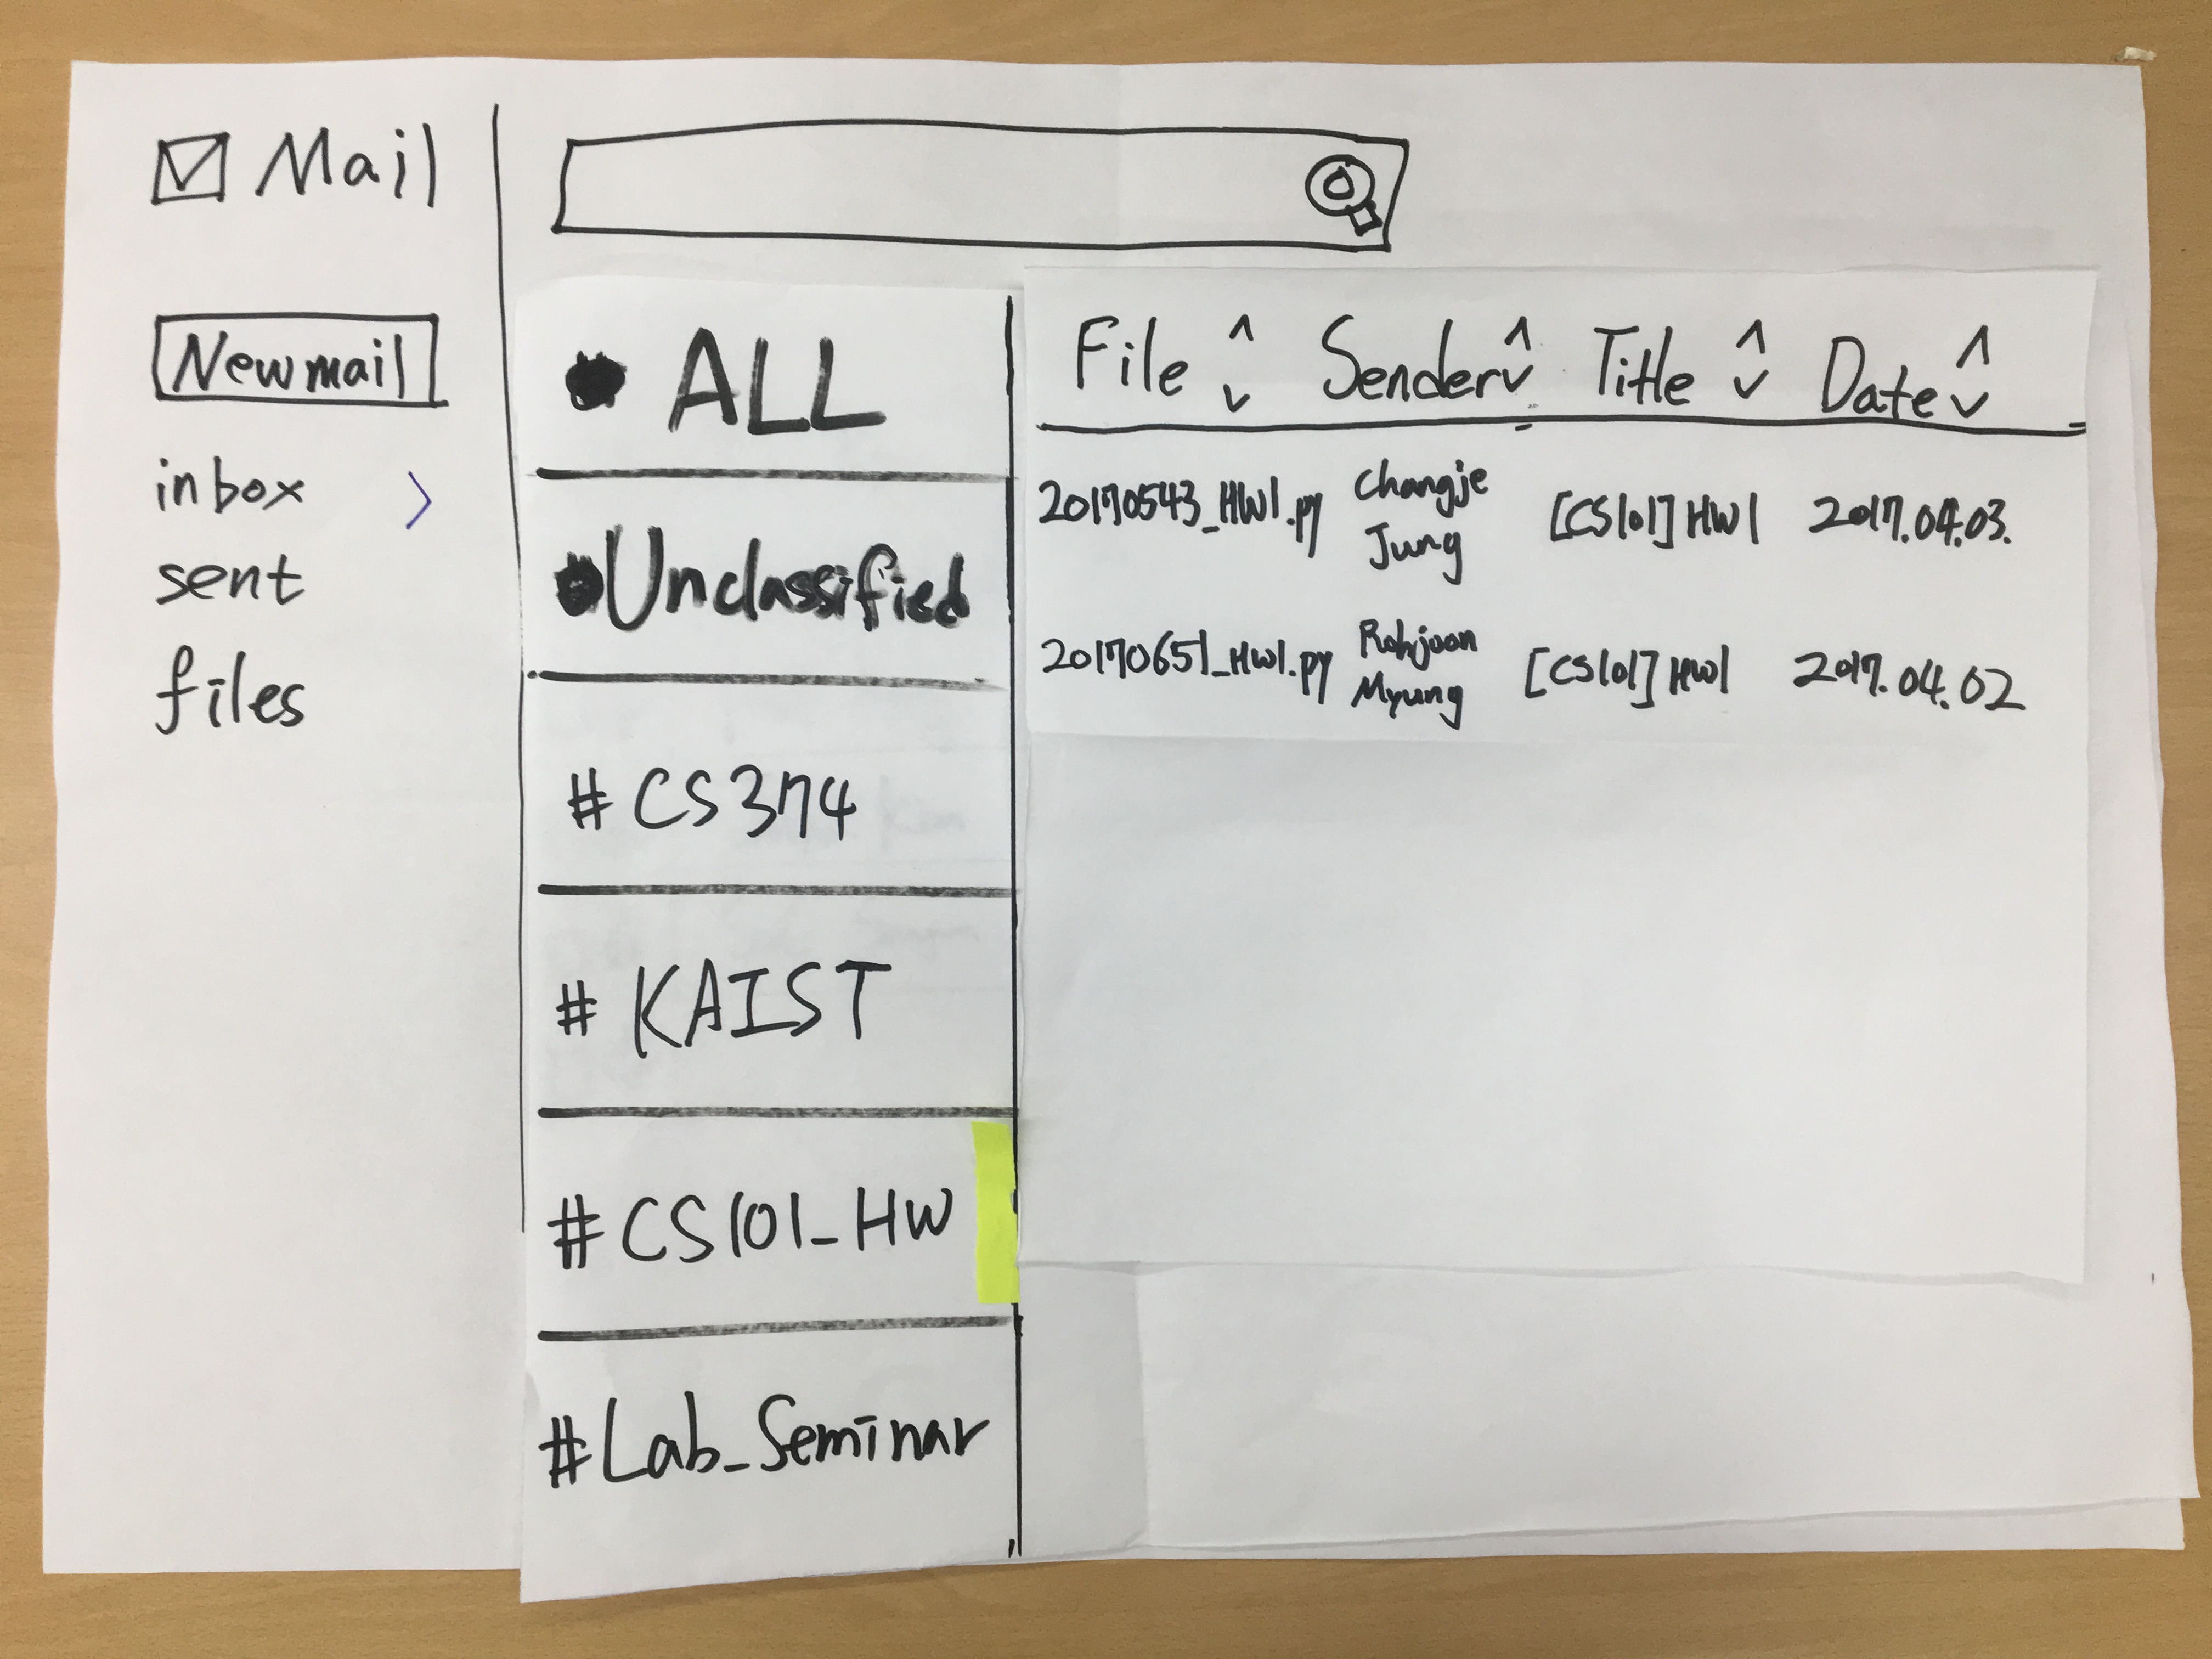 Mail
New mail
inbox >
sent
files
ALL
Unclassified
#CS374
# KAIST
#CS101_HW
#Lab_Seminar
File Sender Title Date
20170543_HW1.py Changje Jung [CS101] HW1 2017.04.03.
20170651_HW1.py Rohjoon Myung [CS101] HW1 2017.04.02